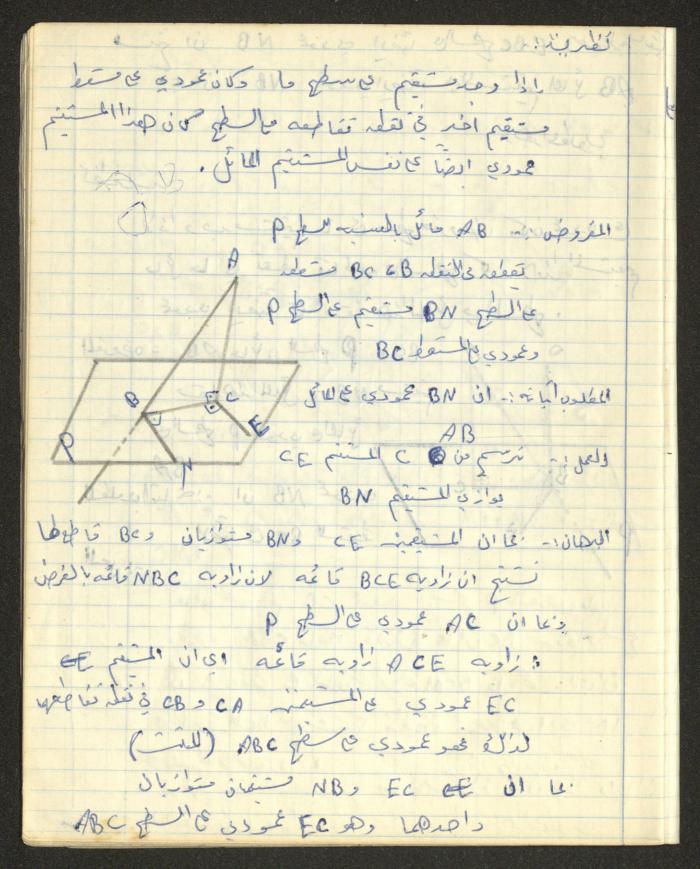 نظرية :
اذا وجد مستقيم على سطح ما وكان عمودي على مسقط
مستقيم اخر في نقطه تقاطعه مع السطح كان هذا المستقيم
عمودي ايضاً على نفس المستقيم المائل .
المفروض :- AB مائل بالنسبه للسطح P
يقطعه في النقطه B و BC مسقطه
على السطح BN مستقيم على السطح P
وعمودي على المسقط BC
المطلوب اثباته :- ان BN عمودي على المائل
AB
العمل :- نرسم من C المستقيم CE
يوازي المستقيم BN
البرهان :- بما ان المستقيمين CE و BN متوازيان و BC قاطعها
نستنتج ان زاويه BCE قائمه لان زاويه NBC قائمه بالفرض
وبما ان AC عمودي على السطح P
: زاويه ACE زاويه قائمه اي ان المستقيم CE
EC عمودي على المستقيمين CA و CB في نقطه تقاطعهما
لذلك فهو عمودي على سطح ABC (المثلث)
بما ان CE EC و NB مستقيمان متوازيان
واحدهما وهو EC عمودي على السطح ABC
A
B
E C
E
P
N